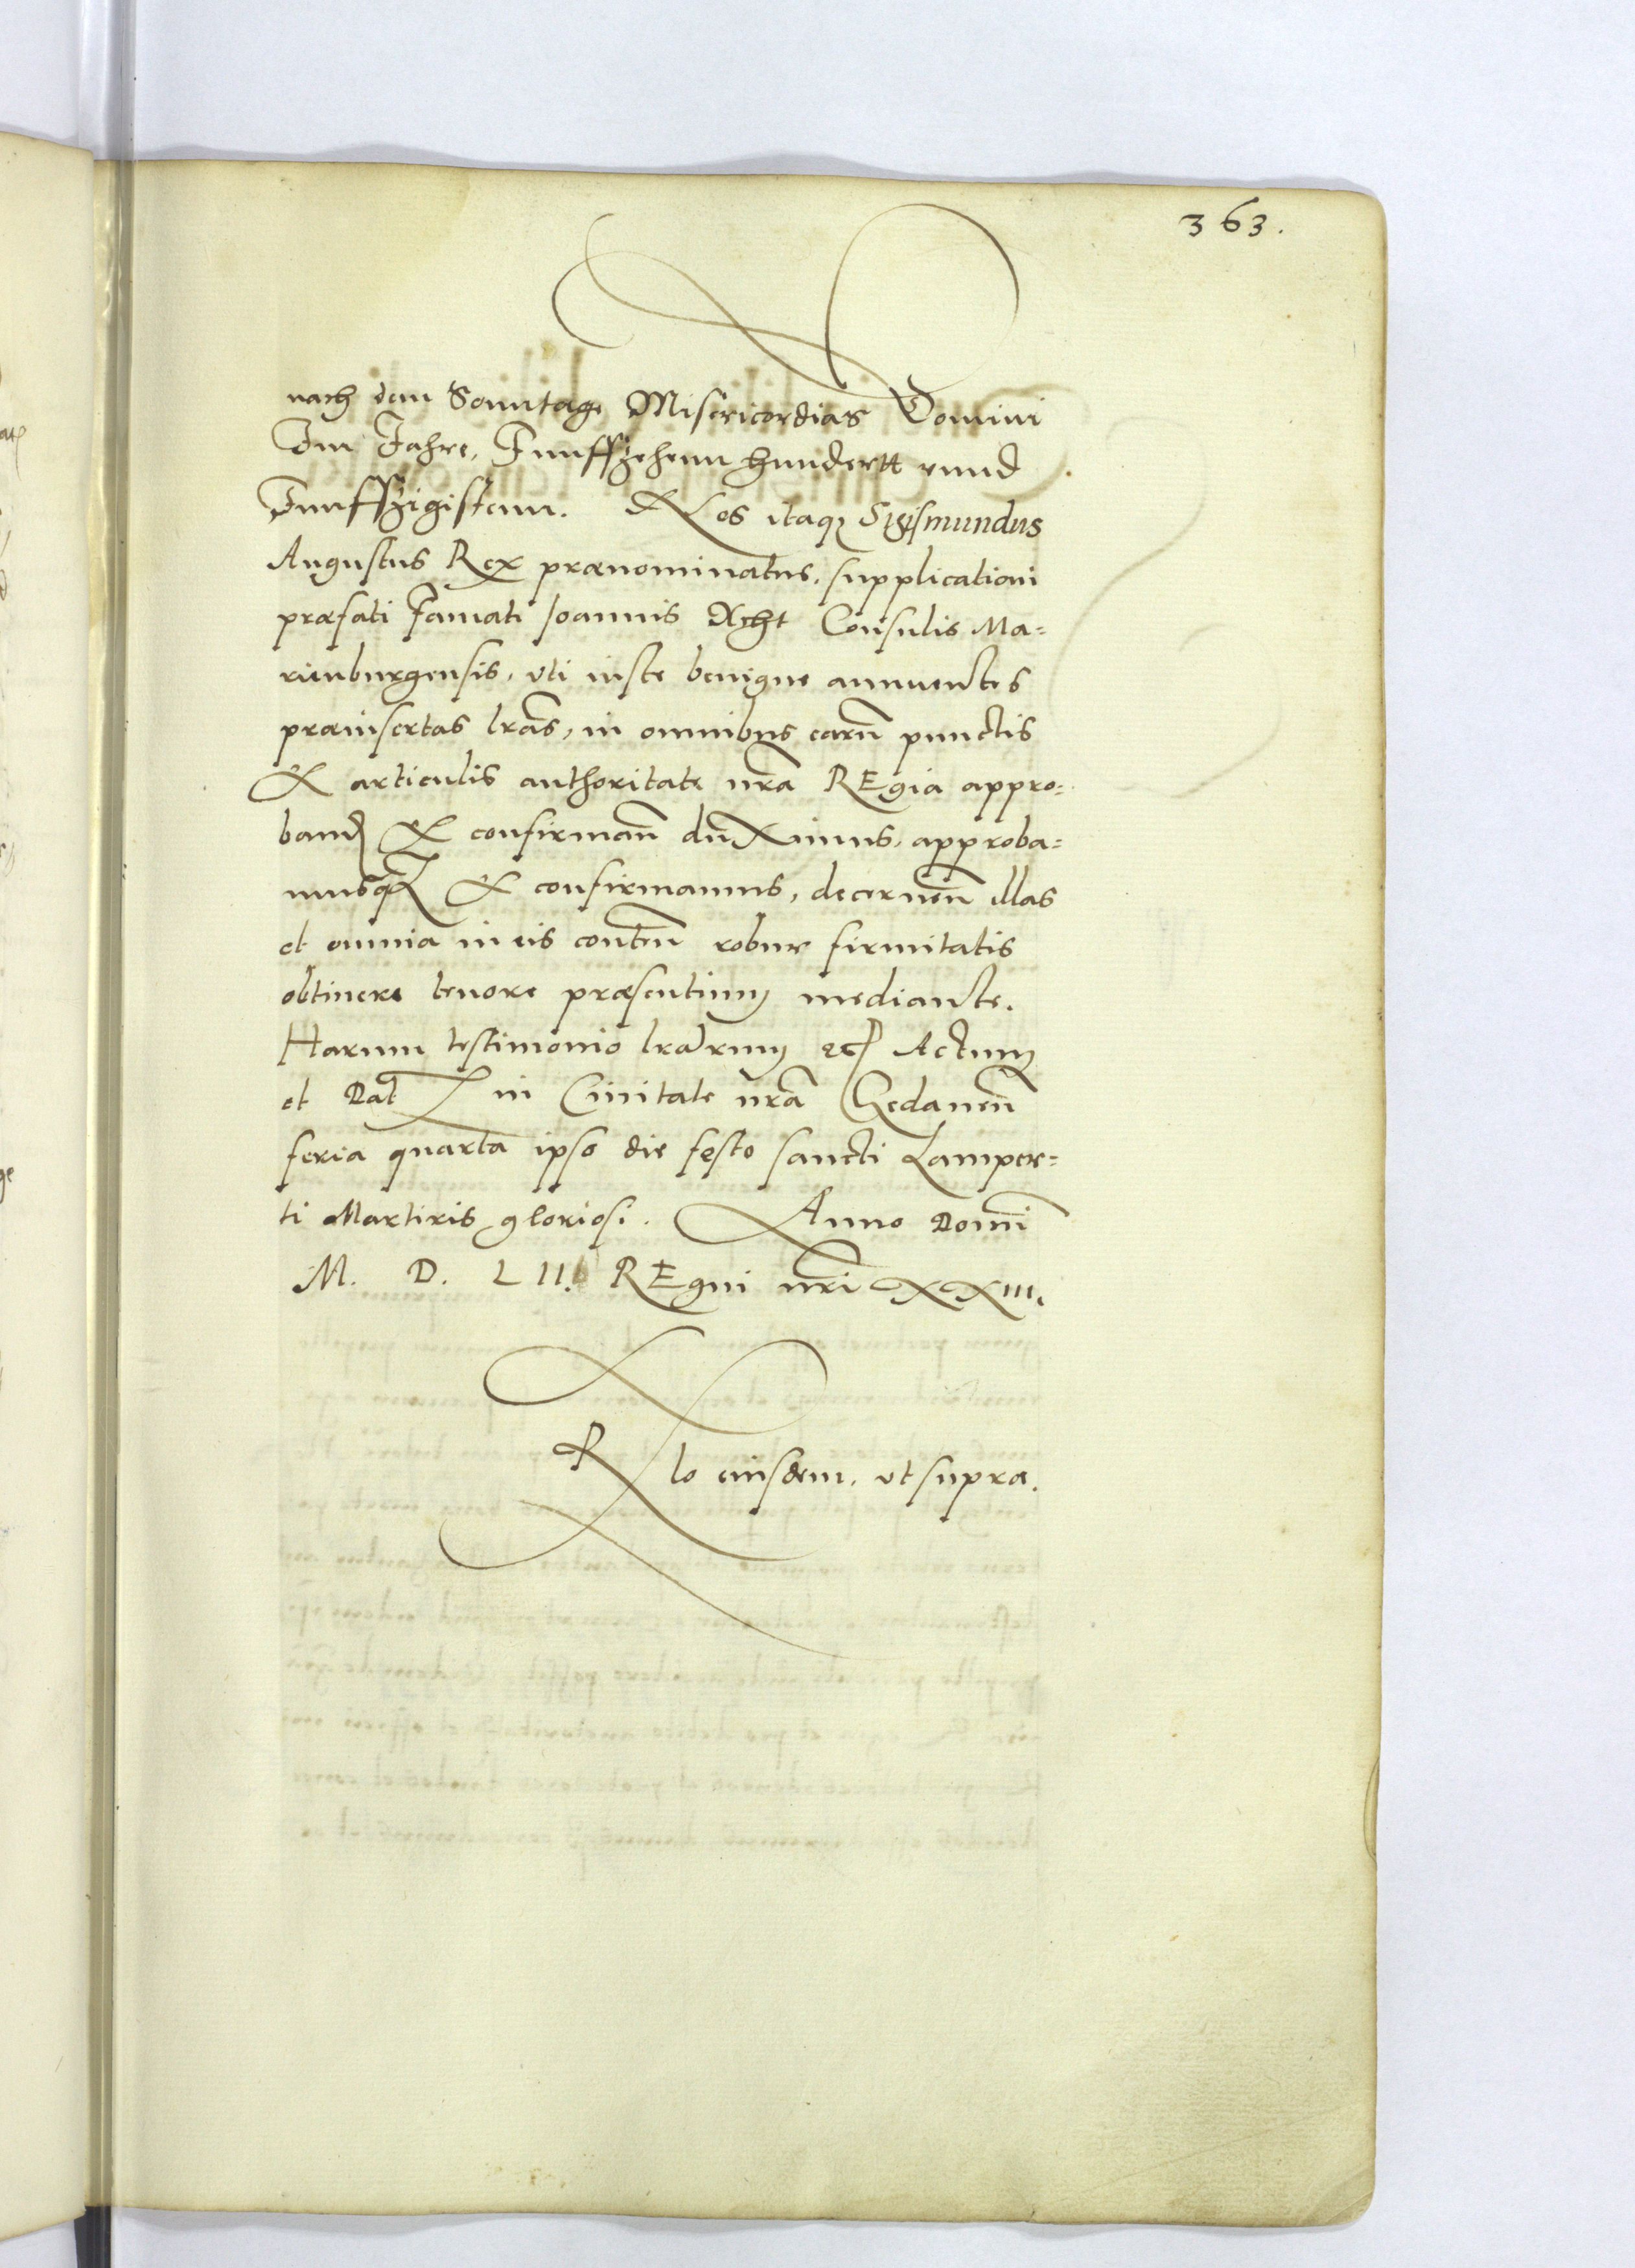 363.
nach dem Sonntage Misericordias Domini
Im Jahre, Funffzehenn hundertt vnnd
Funffzigistenn. Nos itaq; Sigismundus
Augustus Rex prænominatus, supplicationi
præfati Famati Ioannis Acht Consulis Ma=
rienburgensis, vti iuste benigne annuentes
præinsertas lr̃as, in omnibus earũ punctis
& articulis authoritate nr̃a REgia appro=
band & confirmañ duximus, approba=
musq; & confirmamus, decerneñ illas
et omnia in eis conteñ robur firmitatis
obtinere tenore præsentium mediante.
Harum testimonio lr̃arum etc Actum
et Dat in Ciuitate nr̃a Gedaneñ
feria quarta ipso die festo sancti Lamper=
ti Martiris gloriosi. Anno Domi
M. D. LII. REgni nr̃i XXIII.
Rlo eiusdem. vt supra.